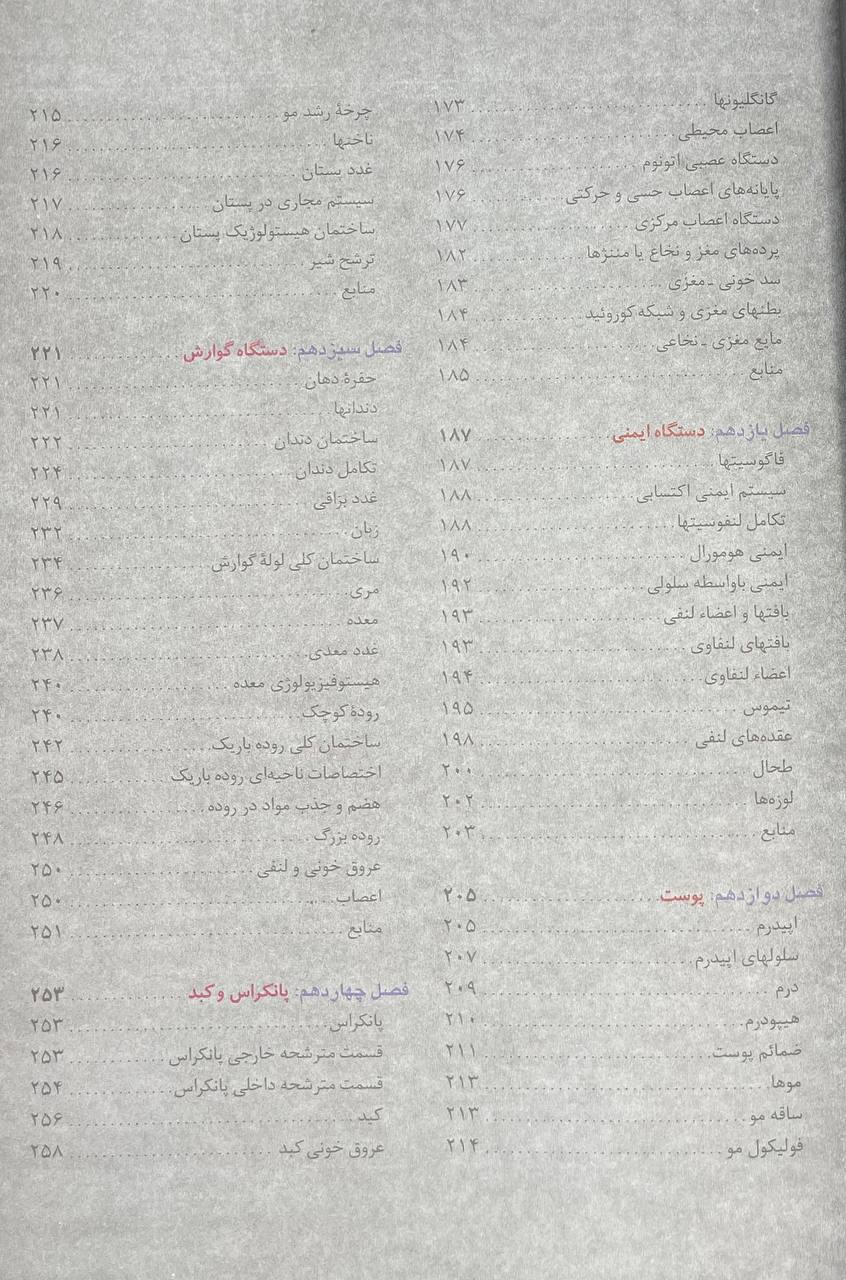 گانگلیونها ۱۷۳
اعصاب محیطی ۱۷۴
دستگاه عصبی اتونوم ۱۷۶
پایانه‌های اعصاب حسی و حرکتی ۱۷۶
دستگاه اعصاب مرکزی ۱۷۷
پرده‌های مغز و نخاع یا مننژها ۱۸۲
سد خونی ـ مغزی ۱۸۳
بطنهای مغزی و شبکه کوروئید ۱۸۴
مایع مغزی ـ نخاعی ۱۸۴
منابع ۱۸۵
فصل یازدهم: دستگاه ایمنی ۱۸۷
فاگوسیتها ۱۸۷
سیستم ایمنی اکتسابی ۱۸۸
تکامل لنفوسیتها ۱۸۸
ایمنی هومورال ۱۹۰
ایمنی باواسطه سلولی ۱۹۲
بافتها و اعضاء لنفی ۱۹۳
بافتهای لنفاوی ۱۹۳
اعضاء لنفاوی ۱۹۴
تیموس ۱۹۵
عقده‌های لنفی ۱۹۸
طحال ۲۰۰
لوزه‌ها ۲۰۲
منابع ۲۰۳
فصل دوازدهم: پوست ۲۰۵
اپیدرم ۲۰۵
سلولهای اپیدرم ۲۰۷
درم ۲۰۹
هیپودرم ۲۱۰
ضمائم پوست ۲۱۱
موها ۲۱۳
ساقه مو ۲۱۳
فولیکول مو ۲۱۴
چرخهٔ رشد مو ۲۱۵
ناخنها ۲۱۶
غدد پستان ۲۱۶
سیستم مجاری در پستان ۲۱۷
ساختمان هیستولوژیک پستان ۲۱۸
ترشح شیر ۲۱۹
منابع ۲۲۰
فصل سیزدهم: دستگاه گوارش ۲۲۱
حفرهٔ دهان ۲۲۱
دندانها ۲۲۱
ساختمان دندان ۲۲۲
تکامل دندان ۲۲۴
غدد بزاقی ۲۲۹
زبان ۲۳۲
ساختمان کلی لولهٔ گوارش ۲۳۴
مری ۲۳۶
معده ۲۳۷
غدد معدی ۲۳۸
هیستوفیزیولوژی معده ۲۴۰
رودهٔ کوچک ۲۴۰
ساختمان کلی روده باریک ۲۴۲
اختصاصات ناحیه‌ای روده باریک ۲۴۵
هضم و جذب مواد در روده ۲۴۶
روده بزرگ ۲۴۸
عروق خونی و لنفی ۲۵۰
اعصاب ۲۵۰
منابع ۲۵۱
فصل چهاردهم: پانکراس و کبد ۲۵۳
پانکراس ۲۵۳
قسمت مترشحه خارجی پانکراس ۲۵۳
قسمت مترشحه داخلی پانکراس ۲۵۴
کبد ۲۵۶
عروق خونی کبد ۲۵۸